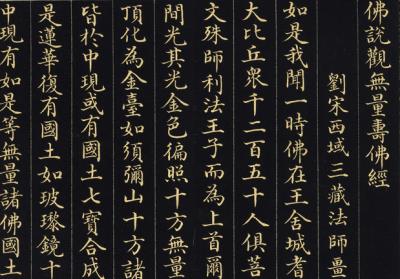 佛說觀無量壽佛經
劉宋西域三藏法師畺
如是我聞一時佛在王舍城耆
大比丘眾千二百五十人俱菩
文殊師利法王子而為上首爾
間光其光金色徧照十方無量
頂化為金臺如須彌山十方諸
皆於中現或有國土七寶合成
是蓮華復有國土如玻瓈鏡十
中現有如是等無量諸佛國土